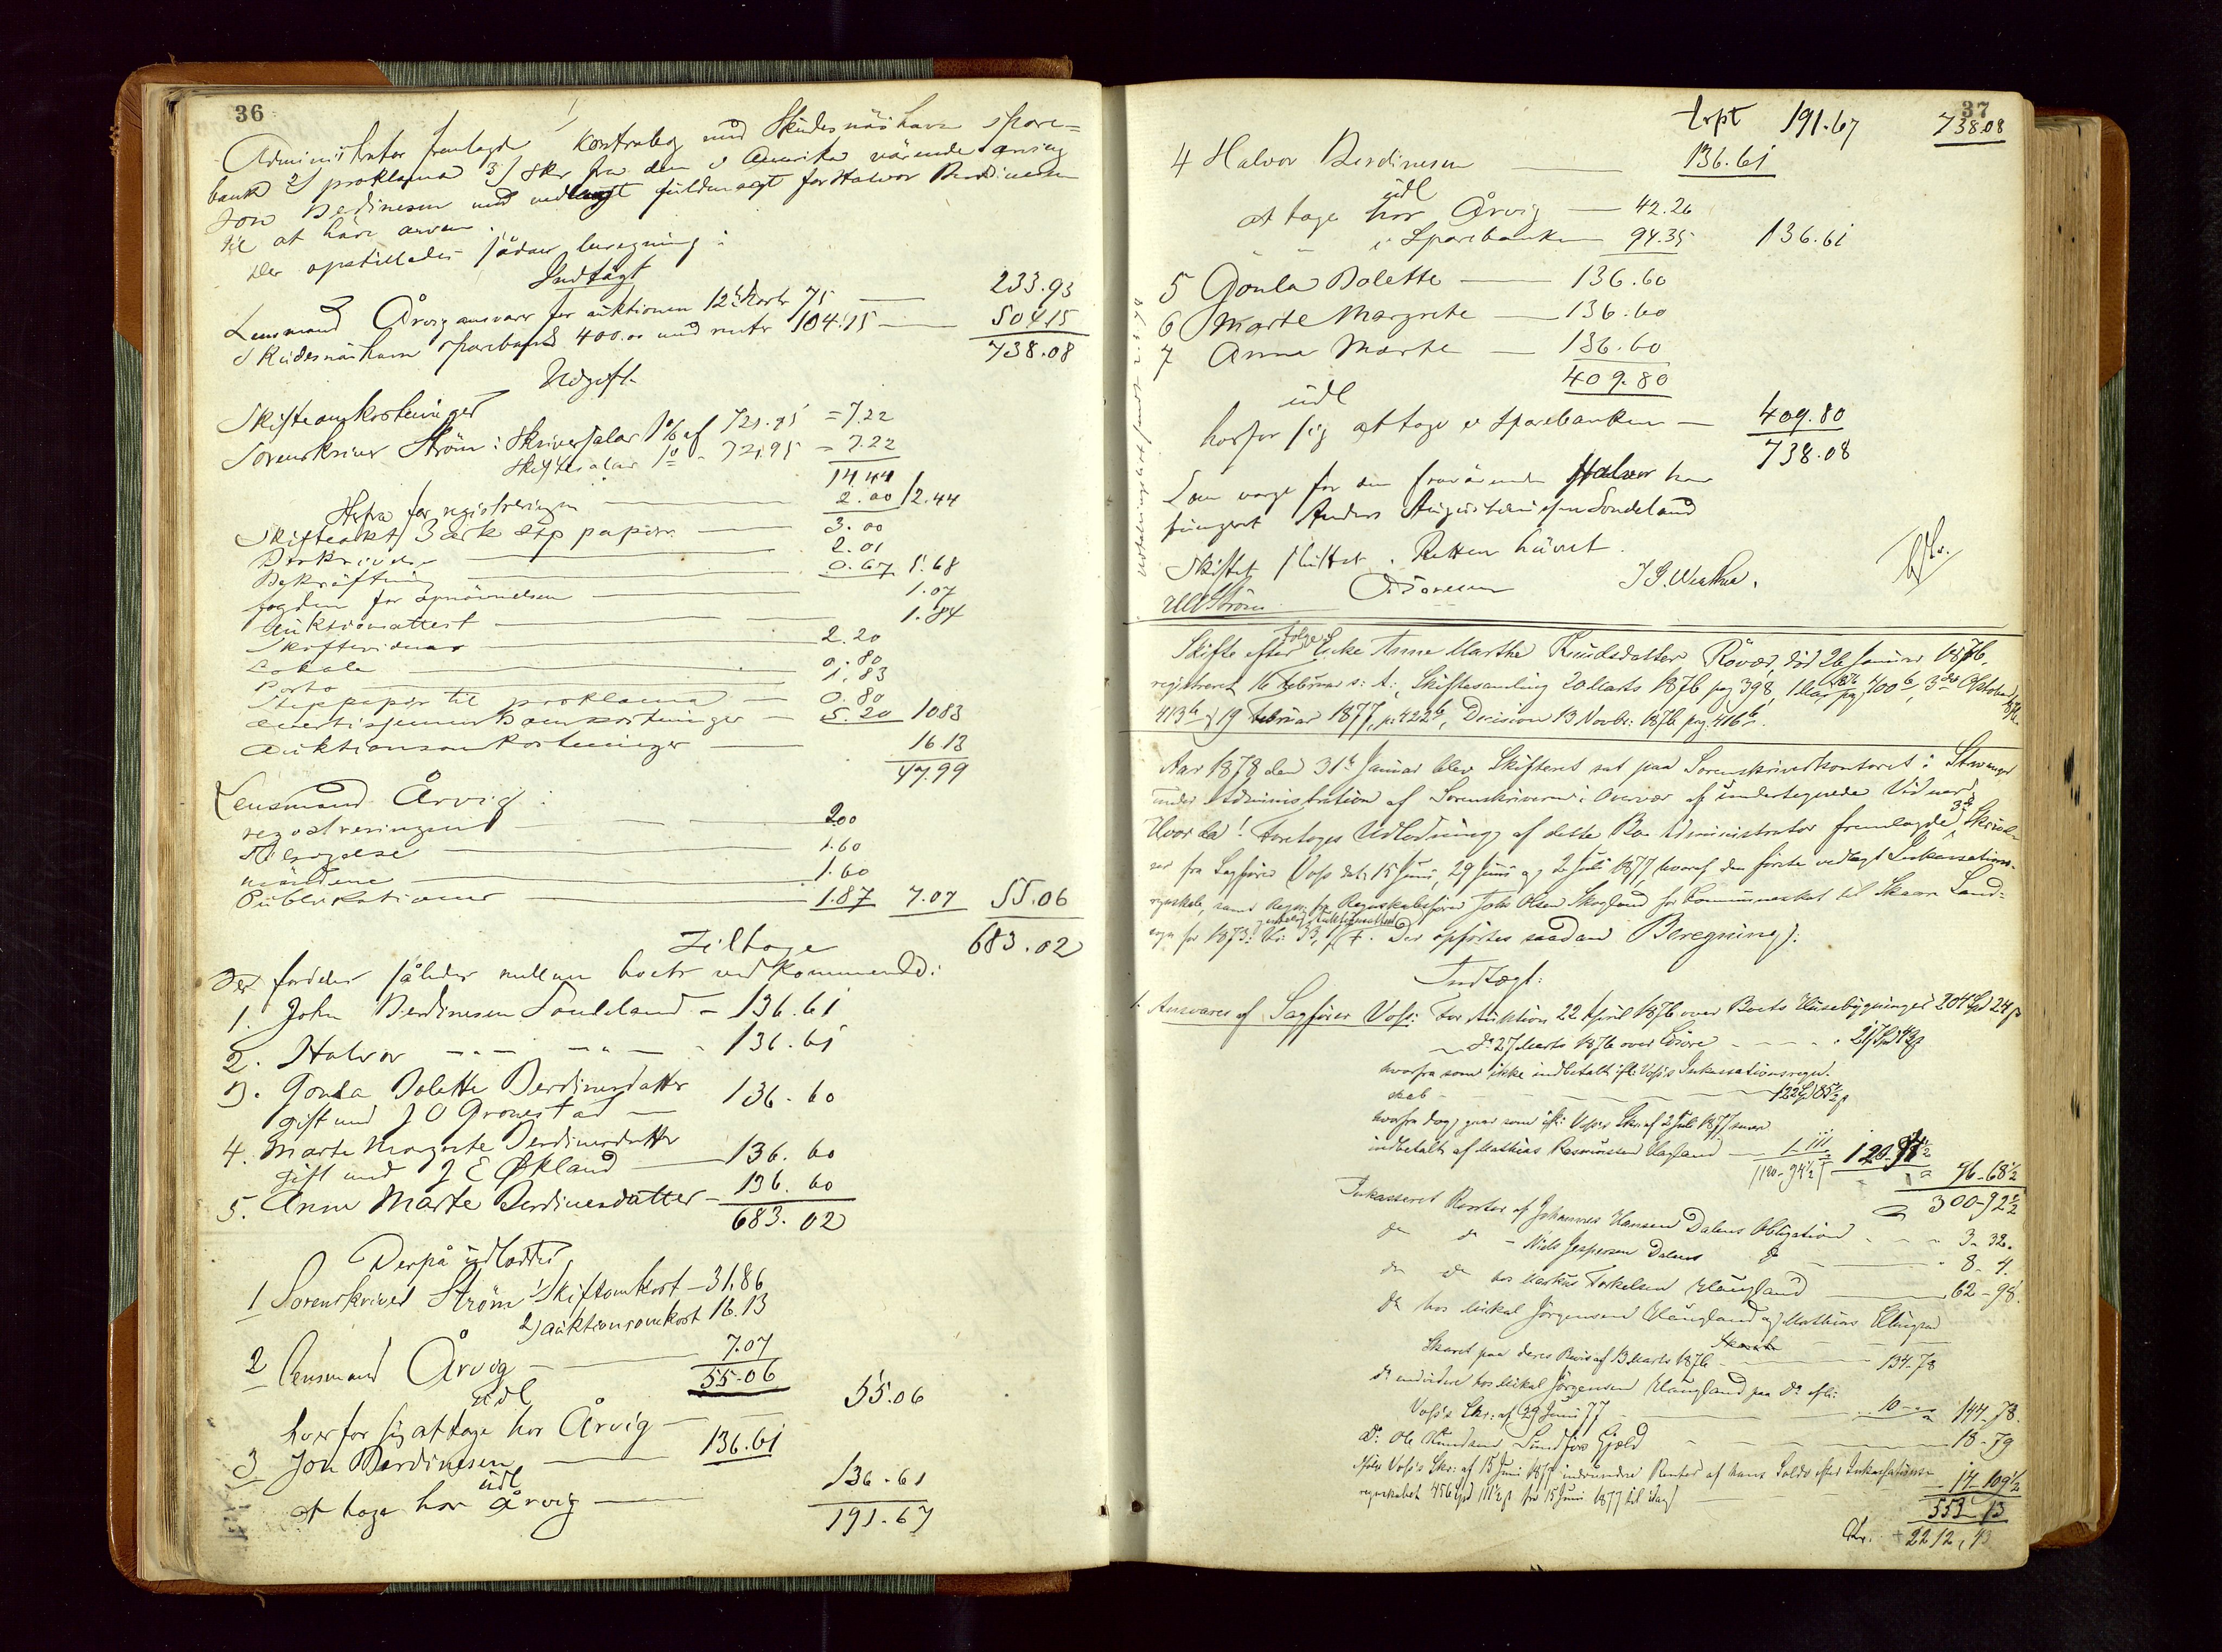 36
Administrator fremlagde 1/ Kontrabog med Skudesnæshavn spare=
bank 2/ proklama 3/ Skr fra den i Amerika værende arving
Jon Berdinesen med vedlagt fuldmagt for Halvor Berdinesen
til at hæve arven.
Der opstilledes sådan beregning:
Indtægt
Lensmand Årvig ansvarer for auktionen 12te Marts 75 — 233.93
Skudesnæshavn sparebank 400.00 med renter 104.15 — 504.15
738.08
Udgift.
Skifteomkostninger
Sorenskriver Strøm: Skriversalær 1% af 721.95 = 7.22
Skiftesalær 1% - 721.95 = 7.22
14.44
Herfra for registreringen — 2.00 12.44
Skifteakt 3 ark stp papir — 3.00
Beskrivelse — 2.01
Bekræftning — 0.67 5.68
fogden for opnævnelsen — 1.07
Auktionsattest — 1.84
Skiftevidner — 2.20
Lokale — 0.80
Porto — 1.83
Stp papir til proklama — 0.80
avertissements omkostninger — 5.20 10.83
Auktionsomkostninger — 16.13
47.99
Lensmand Årvig:
registreringen — 2.00
Tilsigelse — 1.60
mændene — 1.60
Publikationer — 1.87 7.07 55.06
Tilbage 683.02
Der fordeles således mellem boets vedkommende:
1. John Berdinesen Sondeland — 136.61
2. Halvor — " — — " — 136.61
3. Gonla Bolette Berdinesdatter
gift med J O Gronestad — 136.60
4. Marte Margrete Berdinesdatter
gift med J E Økland — 136.60
5. Anne Marte Berdinesdatter — 136.60
683.02
Derpå udloddes
1 Sorenskriver Strøm 1) Skifteomkost — 31.86
2) auktionsomkost 16.13
2 Lensmand Årvig — 7.07
55.06
udl
hverfor sig at tage hos Årvig — 55.06
3 Jon Berdinesen — 136.61
udl
at tage hos Årvig — 136.61
191.67
37
trpt 191.67 738.08
4 Halvor Berdinesen — 136.61
udl
at tage hos Årvig — 42.26
" i Sparebanken 94.35 136.61
5 Gonla Bolette — 136.60
6 Marte Margrete — 136.60
7 Anna Marte — 136.60
409.80
udl
hverfor sig at tage i Sparebanken — 409.80
738.08
Som værge for den fraværende Halvor har
fungeret Anders Augustinusen Sondeland
Skiftet sluttet. Retten hævet.
Strøm
Skifte efter Enke Anne Marthe Knudsdatter Røvær, død 26 Januar 1876.
registreret 16 Februar s: A:, Skiftesamling 20 Marts 1876 pag 398, 1 Mai 1876 pag 400b, 3die Oktober
413b, 19 Februar 1877, p: 422b, Decision 13 Novbr: 1876 pag 416b.
Aar 1878 den 31te Januar blev Skifteret sat paa Sorenskriverkontoret i Stavanger
under Administration af Sorenskriveren i Overvær af undertegnede Vidner.
Hvorda! Foretoges Udlodning af dette Bo. Administrator fremlagde 3de Skrivel-
ser fra Sagfører Voss dat: 15 Juni, 29 Juni og 2 Juli 1877 hvoraf den første vedlagt Inkassations-
regnskab, samt Regn: fra Regnskabsfører John Olsen Skogland for Kommuneskat til Skaare Land-
sogn for 1873: Der opførtes saadan Beregning:
Indtægt:
1. Ansvares af Sagfører Voss: For Auktion 22 April 1876 over Boets Husebygninger 204 Spd 24 s
— do 27 Marts 1876 over Løsøre — 217 Spd
hvorfra som ikke indbetalt ifl: Voss's Inkassationsregn-
skab — 122 Spd 85½ s
hvorfra dog gaar som ifl: Voss's Skr: af 2 Juli 1877 senere
indbetalt af Mathias Rasmussen Haugland — 1-111
120-94½ 96-68½
300-92½
Inkasseret Renter af Johannes Hansen Dalens Obligation — 3-32.
do do - Niels Jespersen Dalens do — 8-4.
do do hos Markus Torkelsen Haugland — 62-98.
do hos Mikal Jørgensen Haugland og Mathias
Skaret paa deres Bevis af 13 Marts 1876 — 134-78
do endvidere hos Mikal Jørgensen Haugland paa do ifl:
Voss's Skr: af 29 Juni 77 — 10-" 144-78.
do: Ole Knudsen Sundfør Gjæld — 18-79
ifølge Voss's Skr: af 15 Juni 1877 indvundne Renter af hans Saldo efter Inkassations-
regnskabet 456 Spd 111½ s fra 15 Juni 1877 til idag — 17-109½
553-13
Kr. 2212,43